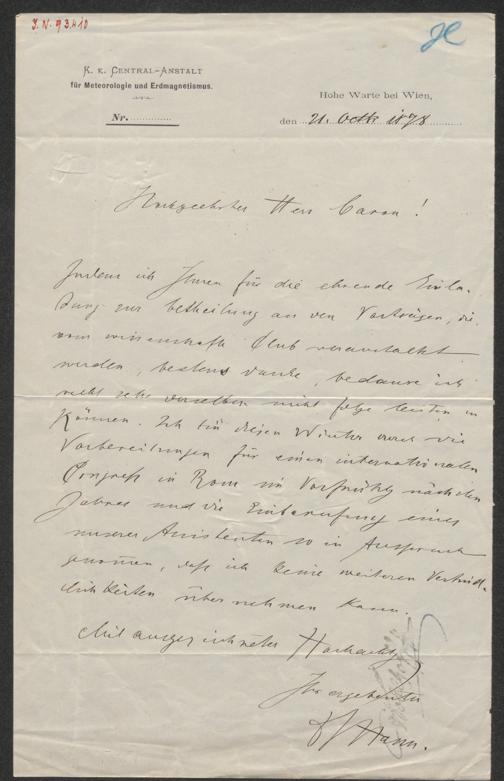 J. N. 93410
K. K. CENTRAL-ANSTALT
für Meteorologie und Erdmagnetismus.
Nr. ..............
Hohe Warte bei Wien,
den 21. Octb 1878
Hochgeehrter Herr Baron!
Indem ich Ihnen für die ehrende Einla-
dung zur betheilung an den Vorträgen, die
vom wissenschaftl Club veranstaltet
werden, bestens danke, bedaure ich
recht sehr derselben nicht folge leisten zu
können. Ich bin diesen Winter durch die
Vorbereitungen für einen internationalen
Congress in Rom im Vorfrühlg nächsten
Jahres und die Einberufung eines
unserer Assistenten so in Anspruch
genommen, daß ich keine weiteren Verbind-
lichkeiten übernehmen kann.
Mit ausgezeichneter Hochachtg
Ihr ergebenster
J Hann.